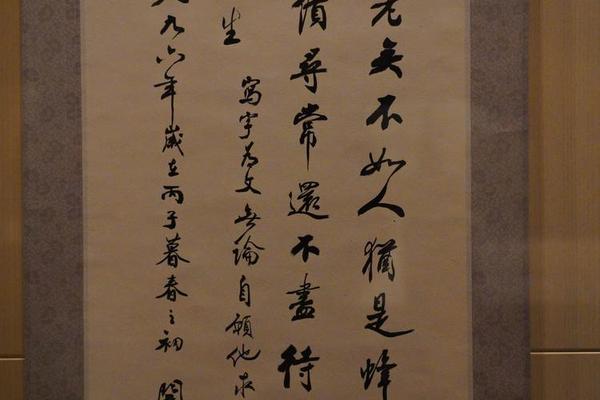 老矣不如人猶是蜂
債尋常還不盡待
生 寫字為文無論自願他求
九六年歲在丙子暮春之初